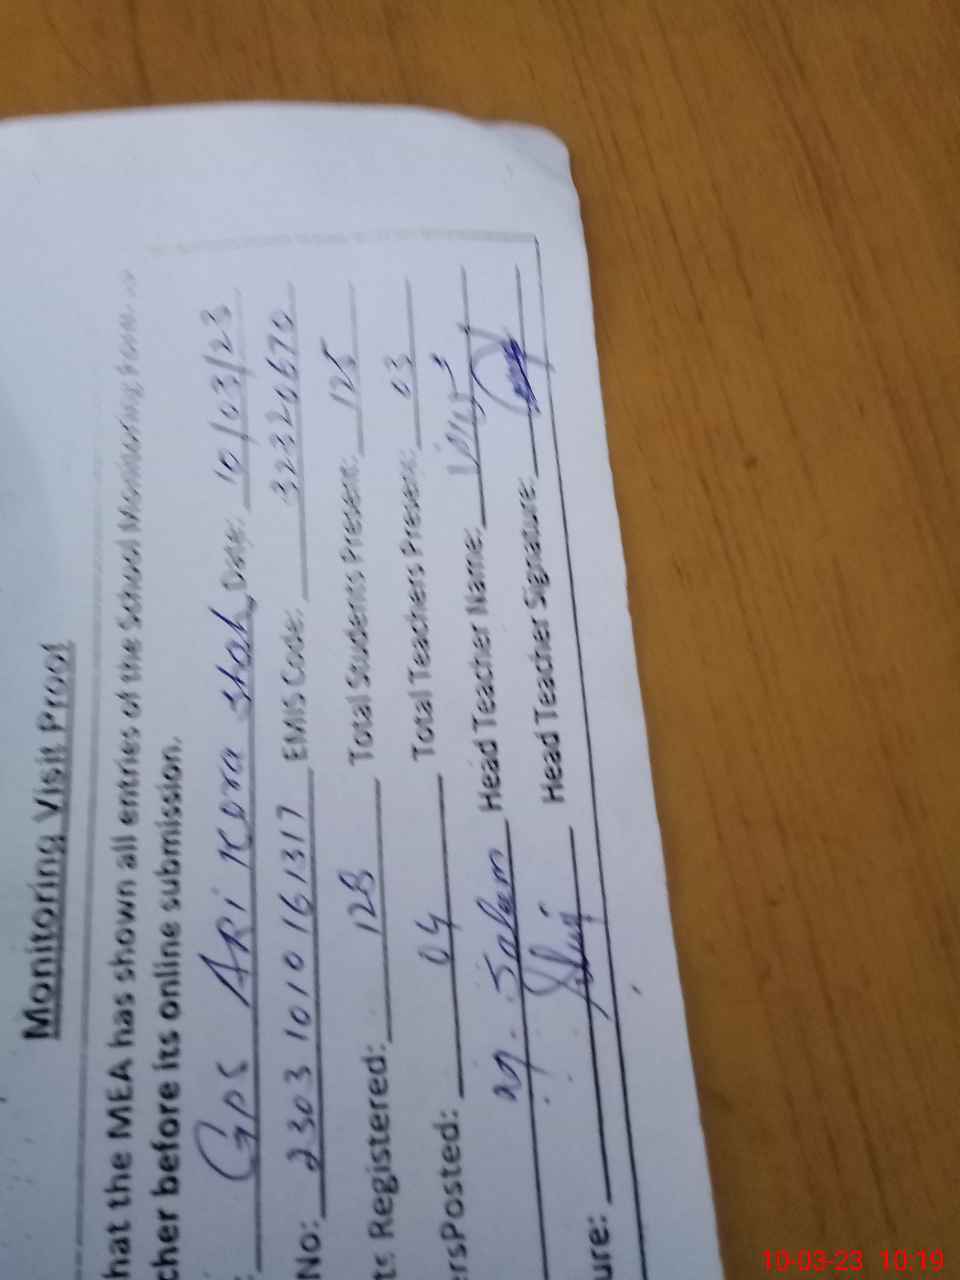 Monitoring Visit Proof
hat the MEA has shown all entries of the School Monitoring
cher before its online submission.
: GPS ARi Kora Shah Date: 10/03/23
No: 23031010161317 EMIS Code: 32320670
ts Registered: 128 Total Students Present: 125
ersPosted: 04 Total Teachers Present: 03
Salam Head Teacher Name:
ure: Head Teacher Signature:
10-03-23 10:19